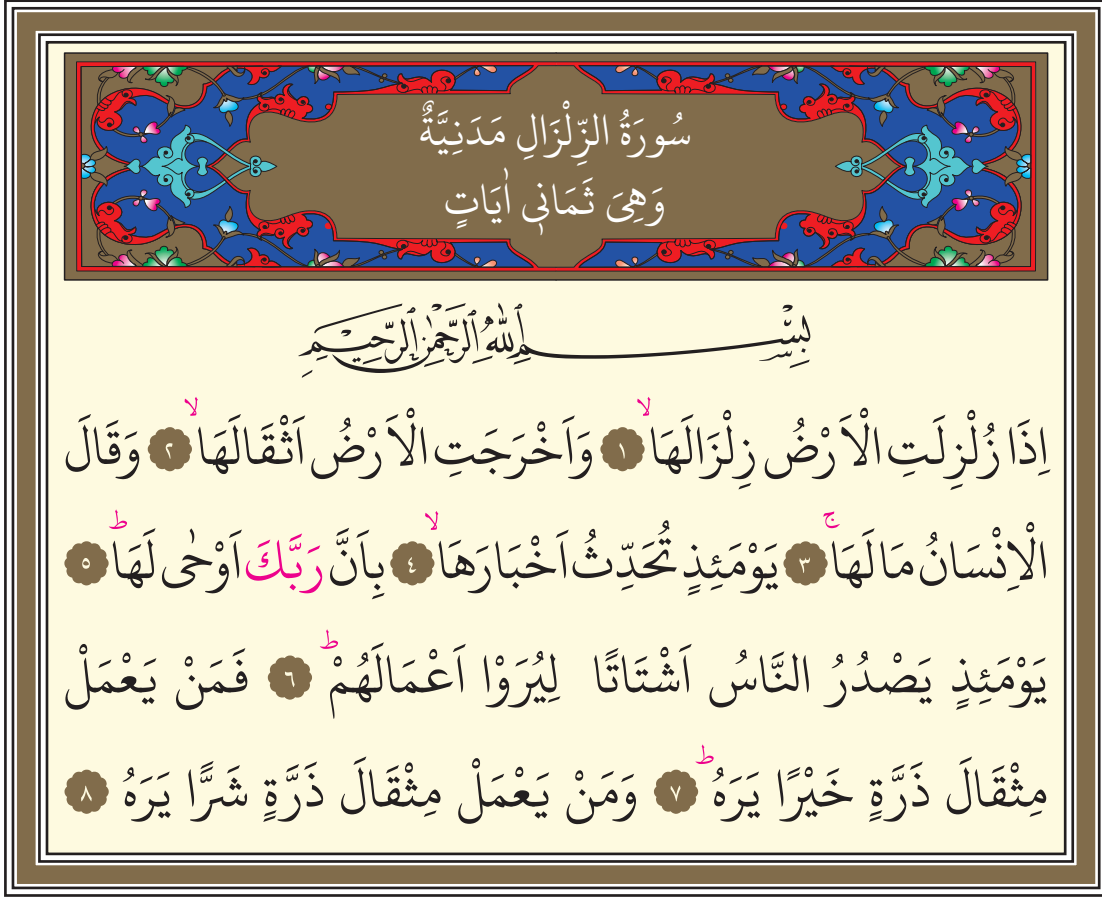 سُورَةُ الزِّلْزَالِ مَدَنِيَّةٌ
وَهِىَ ثَمَانٖى اٰيَاتٍ
بِسْمِ اللّٰهِ الرَّحْمٰنِ الرَّحٖيمِ
اِذَا زُلْزِلَتِ الْاَرْضُ زِلْزَالَهَاۙ ﴿١﴾ وَاَخْرَجَتِ الْاَرْضُ اَثْقَالَهَاۙ ﴿٢﴾ وَقَالَ
الْاِنْسَانُ مَالَهَاۚ ﴿٣﴾ يَوْمَئِذٍ تُحَدِّثُ اَخْبَارَهَاۙ ﴿٤﴾ بِاَنَّ رَبَّكَ اَوْحٰى لَهَاؕ ﴿٥﴾
يَوْمَئِذٍ يَصْدُرُ النَّاسُ اَشْتَاتًا لِيُرَوْا اَعْمَالَهُمْؕ ﴿٦﴾ فَمَنْ يَعْمَلْ
مِثْقَالَ ذَرَّةٍ خَيْرًا يَرَهُؕ ﴿٧﴾ وَمَنْ يَعْمَلْ مِثْقَالَ ذَرَّةٍ شَرًّا يَرَهُ ﴿٨﴾